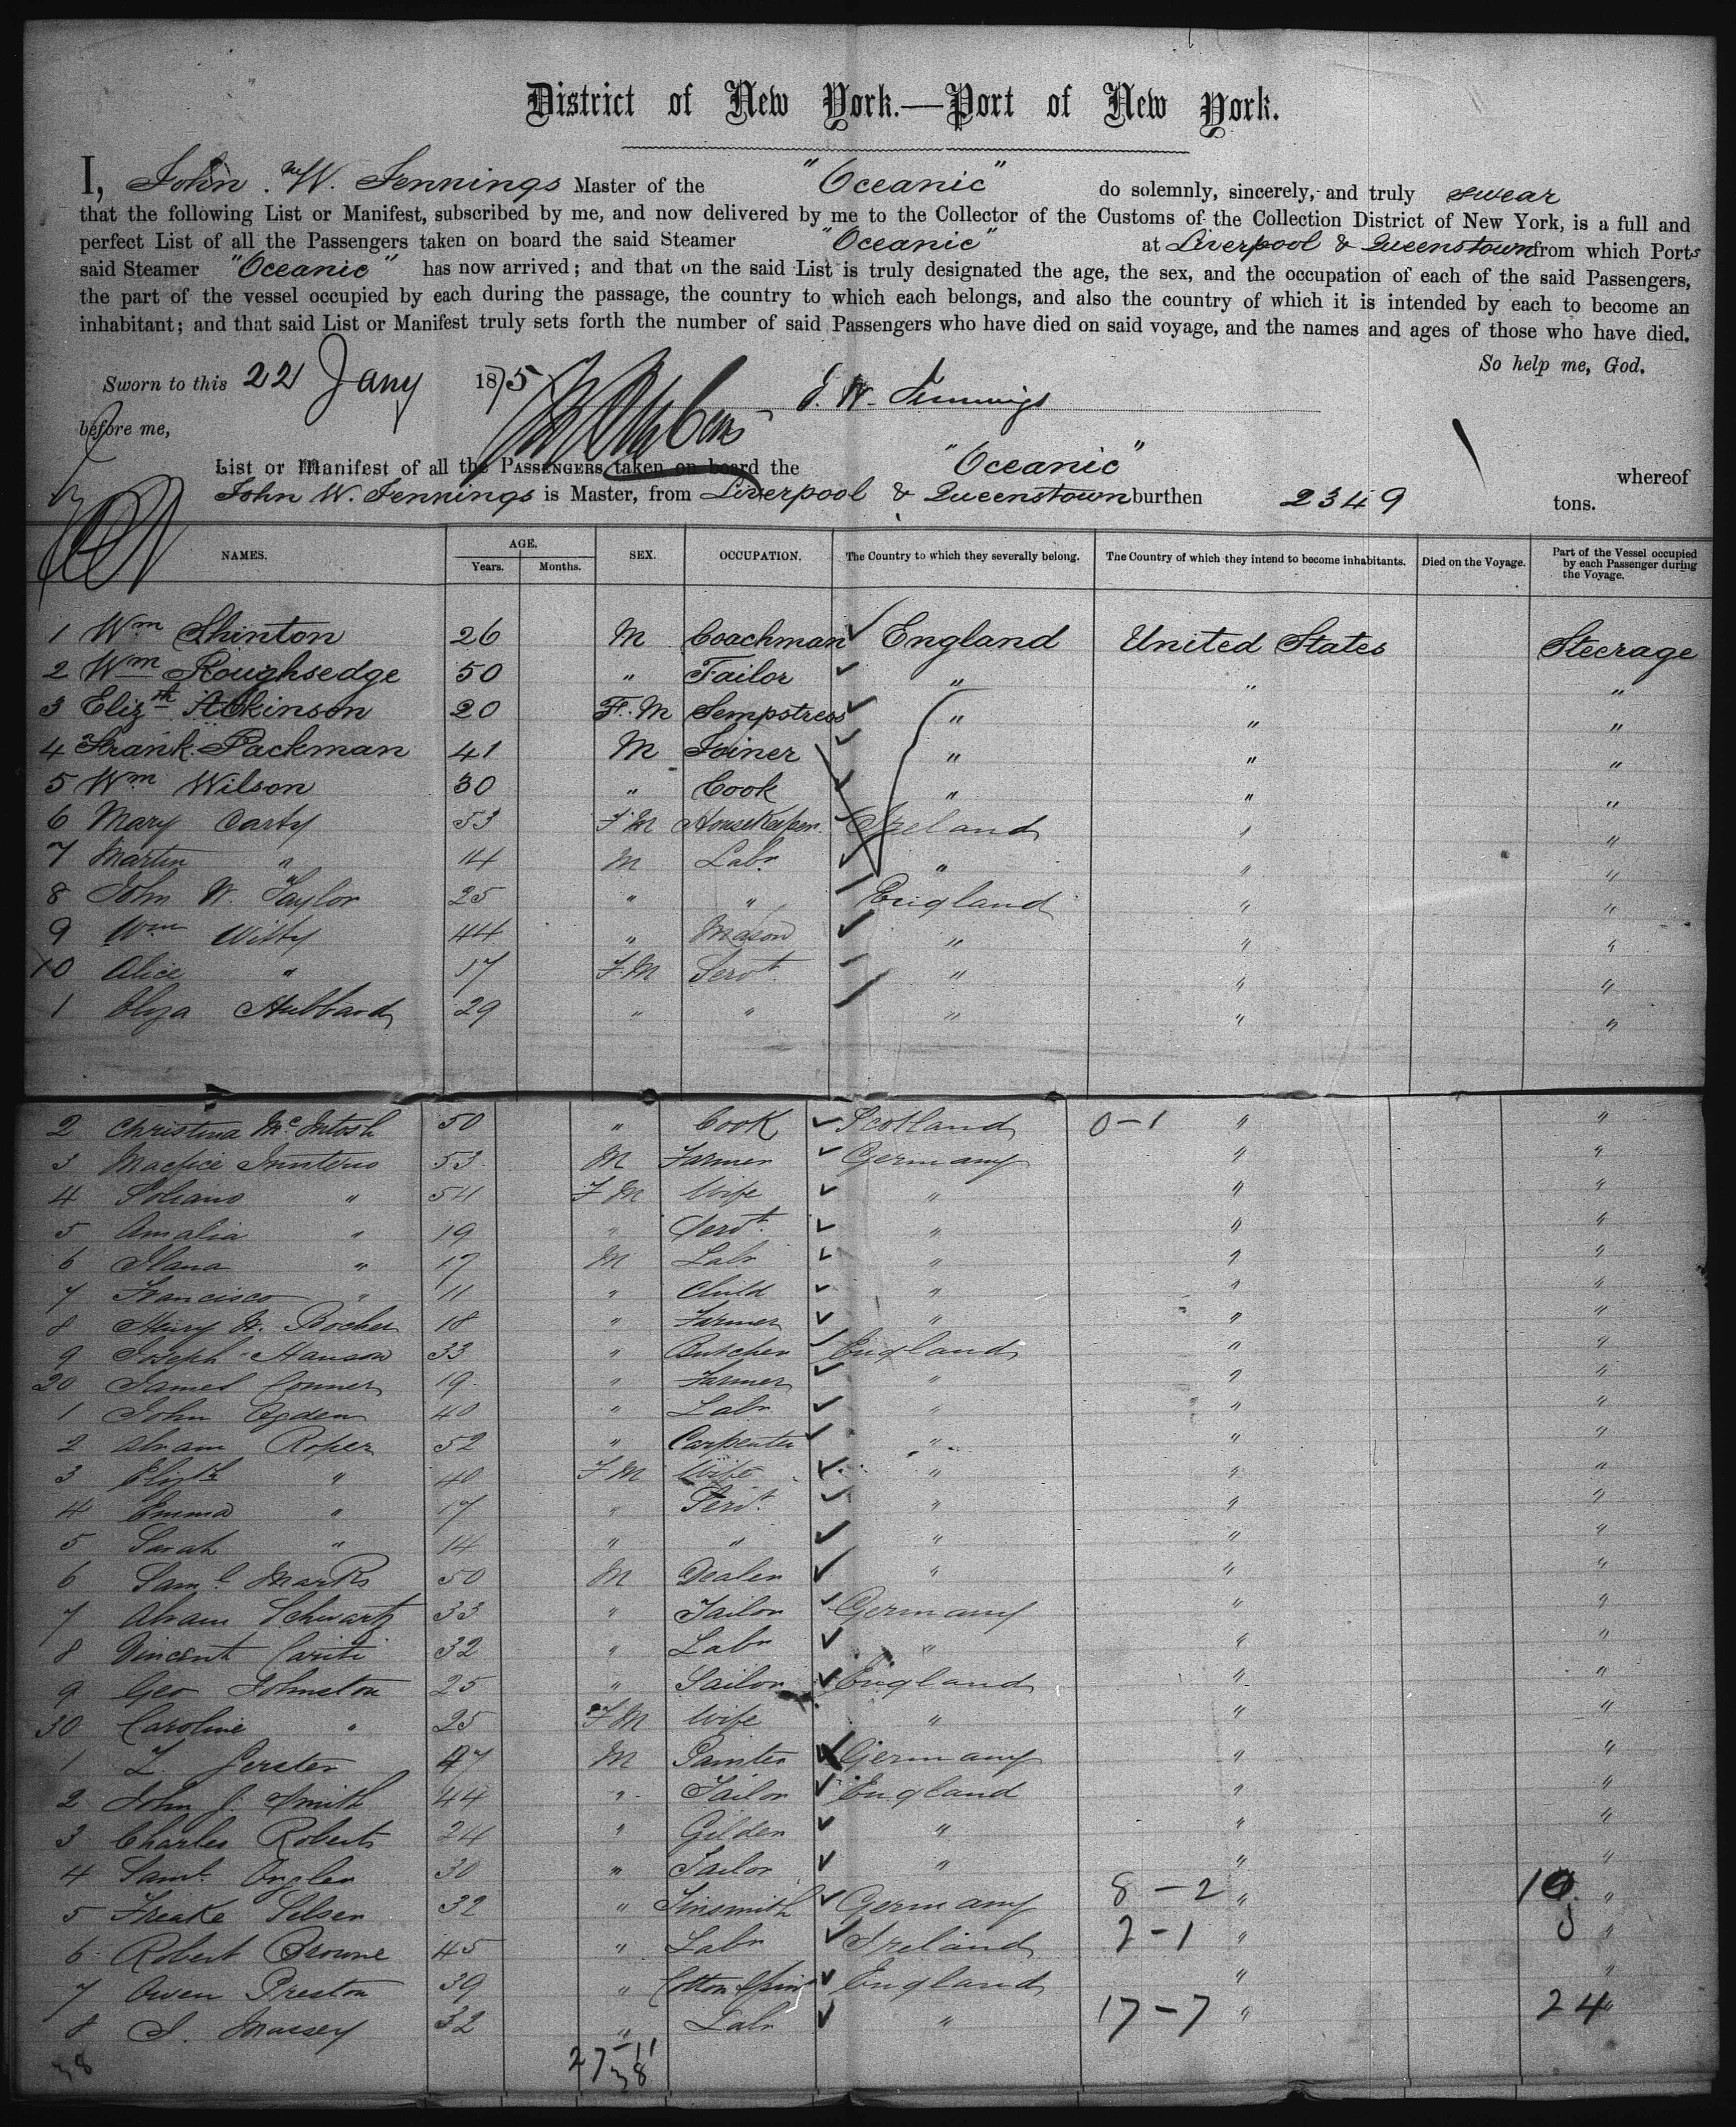 District of New York.—Port of New York.
I, John W. Jennings Master of the "Oceanic" do solemnly, sincerely, and truly swear
that the following List or Manifest, subscribed by me, and now delivered by me to the Collector of the Customs of the Collection District of New York, is a full and
perfect List of all the Passengers taken on board the said Steamer "Oceanic" at Liverpool & Queenstown from which Ports
said Steamer "Oceanic" has now arrived; and that on the said List is truly designated the age, the sex, and the occupation of each of the said Passengers,
the part of the vessel occupied by each during the passage, the country to which each belongs, and also the country of which it is intended by each to become an
inhabitant; and that said List or Manifest truly sets forth the number of said Passengers who have died on said voyage, and the names and ages of those who have died.
So help me, God.
Sworn to this 22 Jany 1875 J. W. Jennings
before me,
List or Manifest of all the PASSENGERS taken on board the "Oceanic" whereof
John W. Jennings is Master, from Liverpool & Queenstown burthen 2349 tons.
NAMES. AGE. Years. Months. SEX. OCCUPATION. The Country to which they severally belong. The Country of which they intend to become inhabitants. Died on the Voyage. Part of the Vessel occupied by each Passenger during the Voyage.
1 Wm Shinton 26 M Coachman England United States Steerage
2 Wm Roughsedge 50 " Tailor " " "
3 Elizth Atkinson 20 F.M Sempstress " " "
4 Frank Packman 41 M Joiner " " "
5 Wm Wilson 30 " Cook " " "
6 Mary Carty 53 F.M HouseKeeper Ireland " "
7 Martin " 14 M Labr " " "
8 John W. Taylor 25 " " England " "
9 Wm Witty 44 " Mason " " "
10 Alice " 17 F.M Servt " " "
1 Eliza Hubbard 29 " " " " "
2 Christina McIntosh 50 " Cook Scotland 0-1 " "
3 53 M Farmer Germany " "
4 " 54 F M Wife " " "
5 Amalia " 19 " Servt " " "
6 " 17 M Labr " " "
7 Francisco " 11 " Child " " "
8 Henry Bocher 18 " Farmer " " "
9 Joseph Hanson 33 " Butcher England " "
20 James Conner 19 " Farmer " " "
1 John Ogden 40 " Labr " " "
2 Abram Roper 52 " Carpenter " " "
3 Elizth " 40 F M Wife " " "
4 Emma " 17 " Servt " " "
5 Sarah " 14 " " " " "
6 Saml Marks 50 M Dealer " " "
7 Abram Schwartz 33 " Tailor Germany " "
8 Vincent Cariti 32 " Labr " " "
9 Geo Johnston 25 " Sailor England " "
30 Caroline " 25 F M Wife " " "
1 L. Gerster 47 M Painter Germany " "
2 John J. Smith 44 " Tailor England " "
3 Charles Roberts 24 " Gilder " " "
4 Saml 30 " Tailor " " "
5 32 " Tinsmith Germany 8-2 " 10 "
6 Robert Browne 45 " Labr Ireland 2-1 " "
7 Owen Preston 39 " Cotton Spinr England " "
8 J. Massey 32 " Labr " 17-7 " 24 "
38 27-11
38